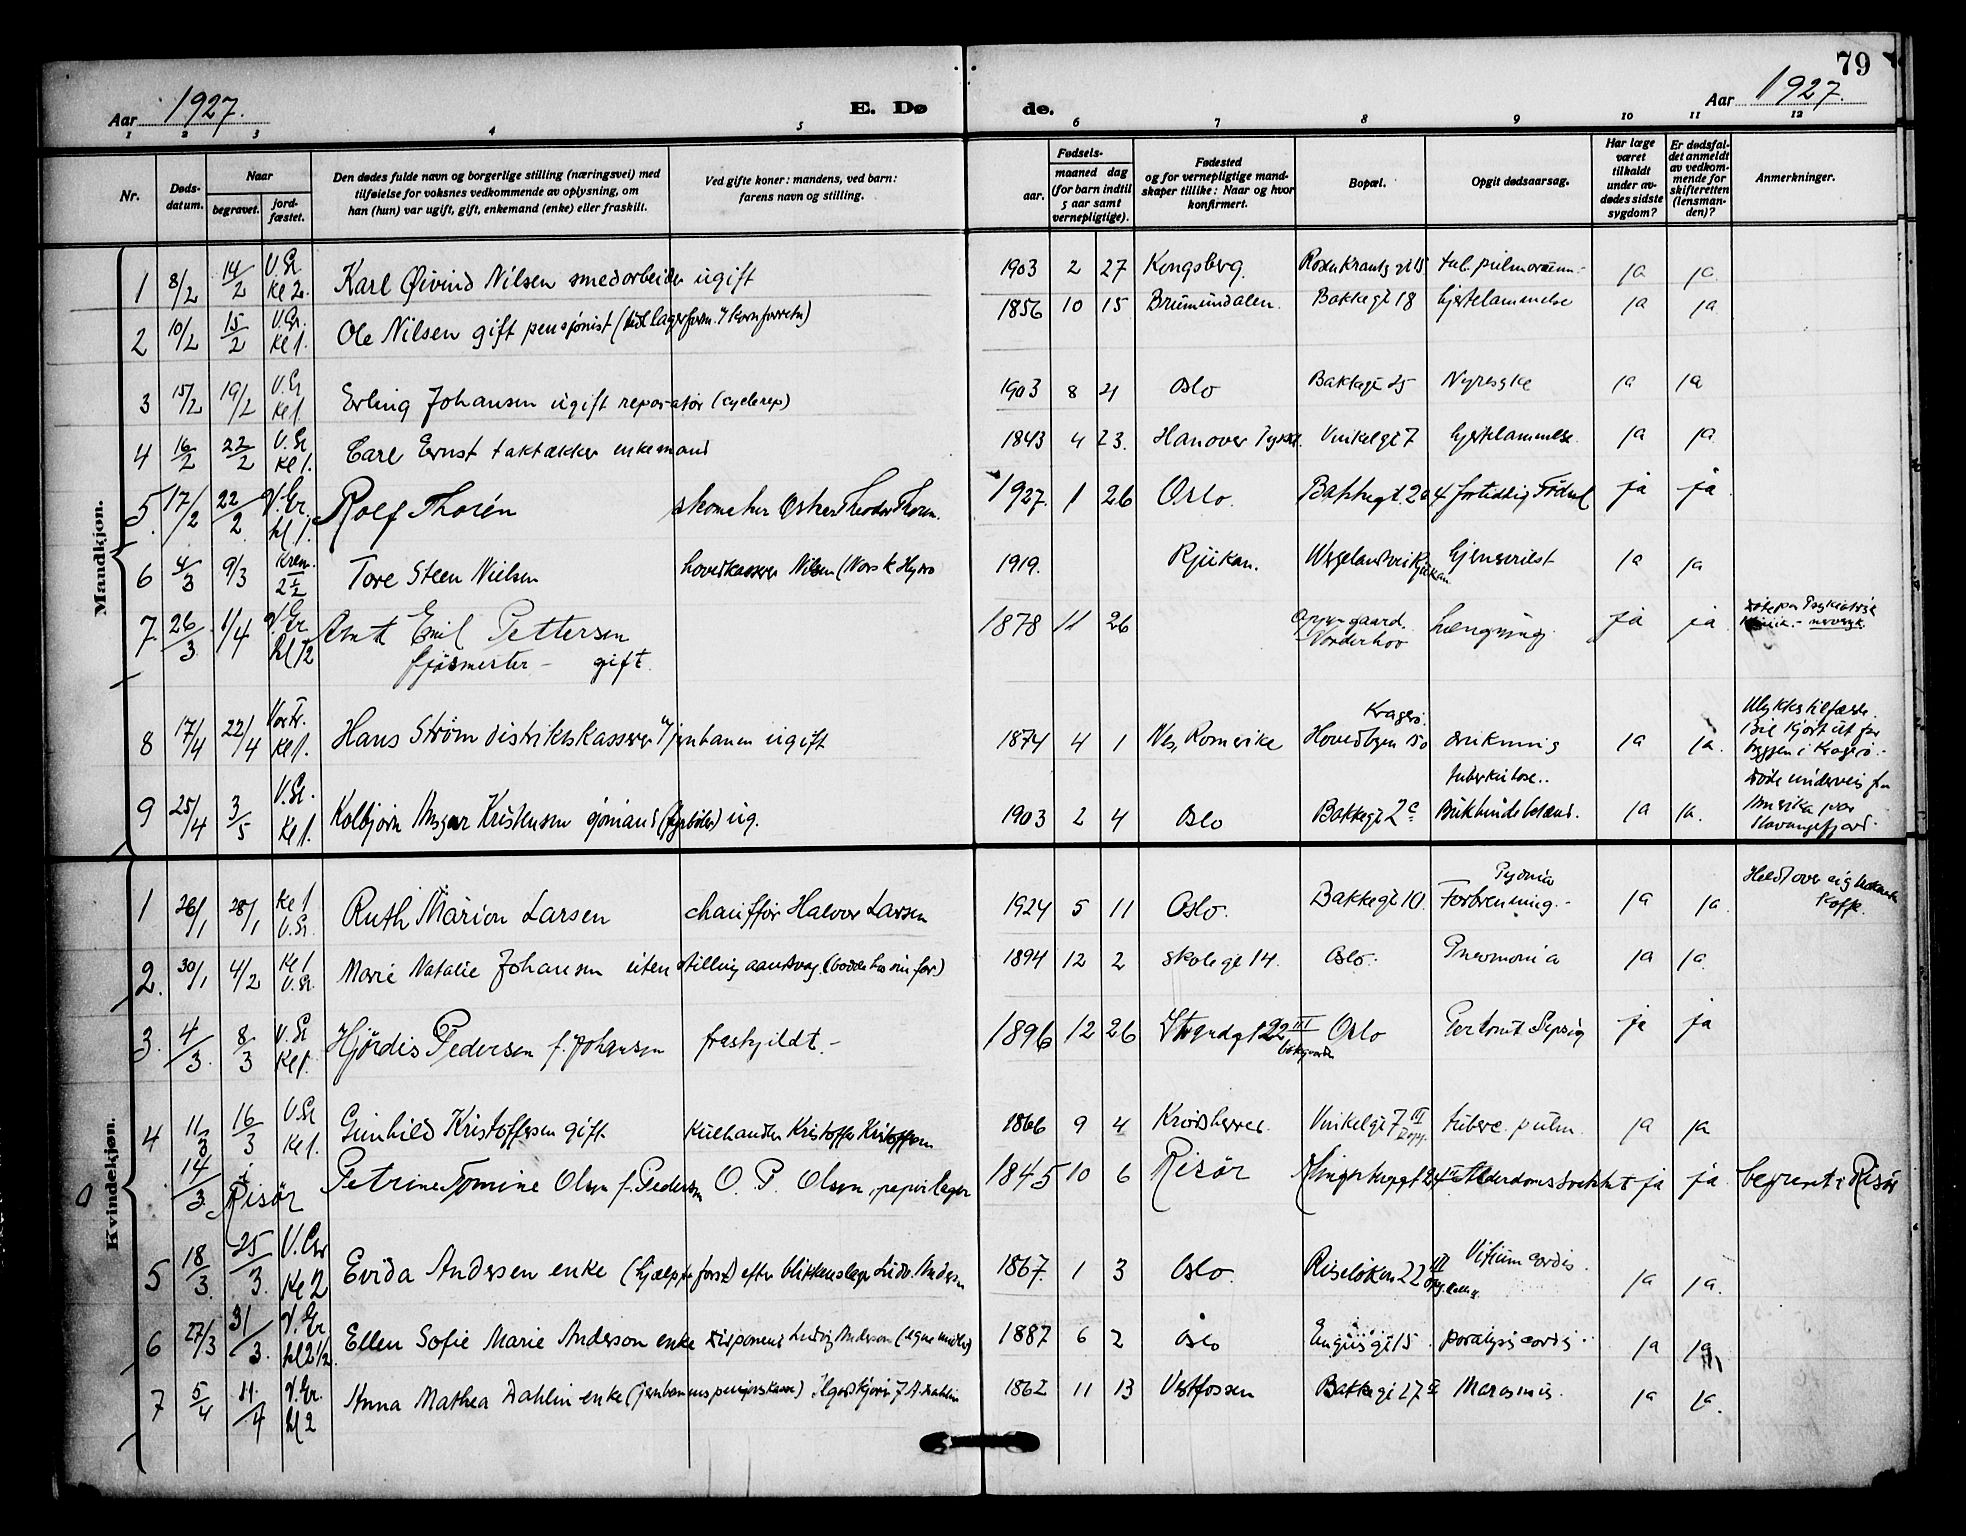 79
Aar 1927.
E. Dø de.
Aar 1927.
1 2 3 4 5 6 7 8 9 10 11 12
Nr.
Døds-
datum.
Naar
begravet.
jord-
fæstet.
Den dødes fulde navn og borgerlige stilling (næringsvei) med
tilføielse for voksnes vedkommende av oplysning, om
han (hun) var ugift, gift, enkemand (enke) eller fraskilt.
Ved gifte koner: mandens, ved barn:
farens navn og stilling.
Fødsels-
aar.
maaned dag
(for barn indtil
5 aar samt
vernepligtige).
Fødested
og for vernepligtige mand-
skaper tillike: Naar og hvor
konfirmert.
Bopæl.
Opgit dødsaarsag.
Har læge
været
tilkaldt
under av-
dødes sidste
sygdom?
Er dødsfal-
det anmeldt
av vedkom-
mende for
skifteretten
(lensman-
den)?
Anmerkninger.
Mandkjøn.
1 8/2 14/2 V. Gr. Kl 2. Karl Øivind Nilsen smedarbeider ugift 1903 2 27 Kongsberg. Rosenkrantz gt 15 tub. pulmonum ja ja
2 10/2 15/2 V. Gr. Kl 1. Ole Nilsen gift pensjonist 1856 10 15 Brumundalen. Bakkegt 18 hjertelammelse ja ja
3 15/2 19/2 V. Gr Kl 1. Erling Johansen ugift reparatør (cyclerep) 1903 8 21 Oslo Bakkegt 25 Nyresyke ja ja
4 16/2 22/2 V. Gr Kl 1. Carl Ernst taktækker enkemand 1843 4 23. Hanover Tyskl. Vinkelgt 7 hjertelammelse. ja ja
5. 17/2 22/2 V. Gr. kl 1. Rolf Thorén skomaker Oskar Theodor Thorén. 1927. 1 26 Oslo. Bakkegt. 20 4 for tidlig Fødsel ja ja
6 4/3 9/3 Krem. 2 1/2 Tore Steen Nielsen hovedkasserer Nilsen (Norsk Hydro 1919. Rjukan. Wergelandsvei Rjukan ja ja
7. 26/3 1/4 V. Gr kl 12 Arnt Emil Pettersen
fjøsmester - gift. 1878 11 26 Oppengaard.
Norderhov hængning. ja ja Døde paa Psykiatrisk
Klinik. - nervesyk
8 17/4 22/4 Kl 1. Hans Strøm distriktskasserer v/jernbanen ugift 1874 4 1 Nes, Romerike Kragerø.
Hovedbyen 150 drukning ja ja. Ulykkestilfælde.
Bil kjørt ut for
bryggen i Kragerø. -
9 25/4 3/5 V. Gr. Kl 1. Kolbjørn Ansgar Kristensen sjømand (fyrbøter) ug. 1903 2 4 Oslo Bakkegt 2 c tuberkulose..
Bukhindebetænd. ja ja. Døde underveis fra
Amerika paa
Stavangerfjord.
Kvindekjøn.
1 26/1 28/1 Kl 1 V. Gr. Ruth Marion Larsen chauffør Halvor Larsen 1924 5 11 Oslo. Bakkegt 10. Pyæmia
Forbrenning. - ja ja Heldt over sig kokende
kaffe.
2. 30/1 4/2 Kl 1 V. Gr. Marie Natalie Johansen uten stilling aandsvag. (bodde hos sin far) 1894 12 2 Skolegt 14. Oslo. Pneumonia ja ja.
3. 4/3. 8/3 V. Gr Kl 1. Hjørdis Pedersen f. Johansen fraskjildt. - 1896 12 26 Storgadgt 22 III
bakgaarden Oslo Peritonit Sepsis ja ja
4 11/3 16/3 V. Gr Kl 1. Gunhild Kristoffersen gift Kulhandler Kristoffer Kristoffersen 1866 9 4 Krødsherred. Vinkelgt 7 III
2 opg. tuberc. pulm. ja ja
14/3 i Risør Petrine Tomine Olsen f. Pedersen O. P. Olsen, papirlager 1845 10 6 Risør 24 II Alderdomssvakhet ja ja begravet i Risør
5 18/3. 25/3. V. Gr Kl 2 Evida Andersen enke (hjælp fra forsd) efter blikkenslager Ludv. Andersen 1867. 1 3 Oslo. Riseløkken 22 III Vitium cordis. ja ja.
6 27/3 31/3. V. Gr kl 2 1/2. Ellen Sofie Marie Anderson enke disponent Ludvig Anderson (egne midler) 1887 6 2 Oslo Engusgt 15. paralysis cordis ja ja
7 5/4 11/4 V. Gr. kl 2 Anna Mathea Dahlin enke (jernbanens pensjonskasse) J. A. Dahlin 1862 11 13 Vestfossen Bakkegt 27 II Marasmus. ja ja.